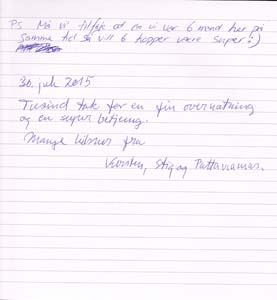 PS Må vi tilføje at da vi var 6 mand her på
samme tid så vill 6 kopper være super :)
30. juli 2015
Tusind tak for en fin overnatning
og en super betjening.
Mange hilsner fra
Karsten, Stig og